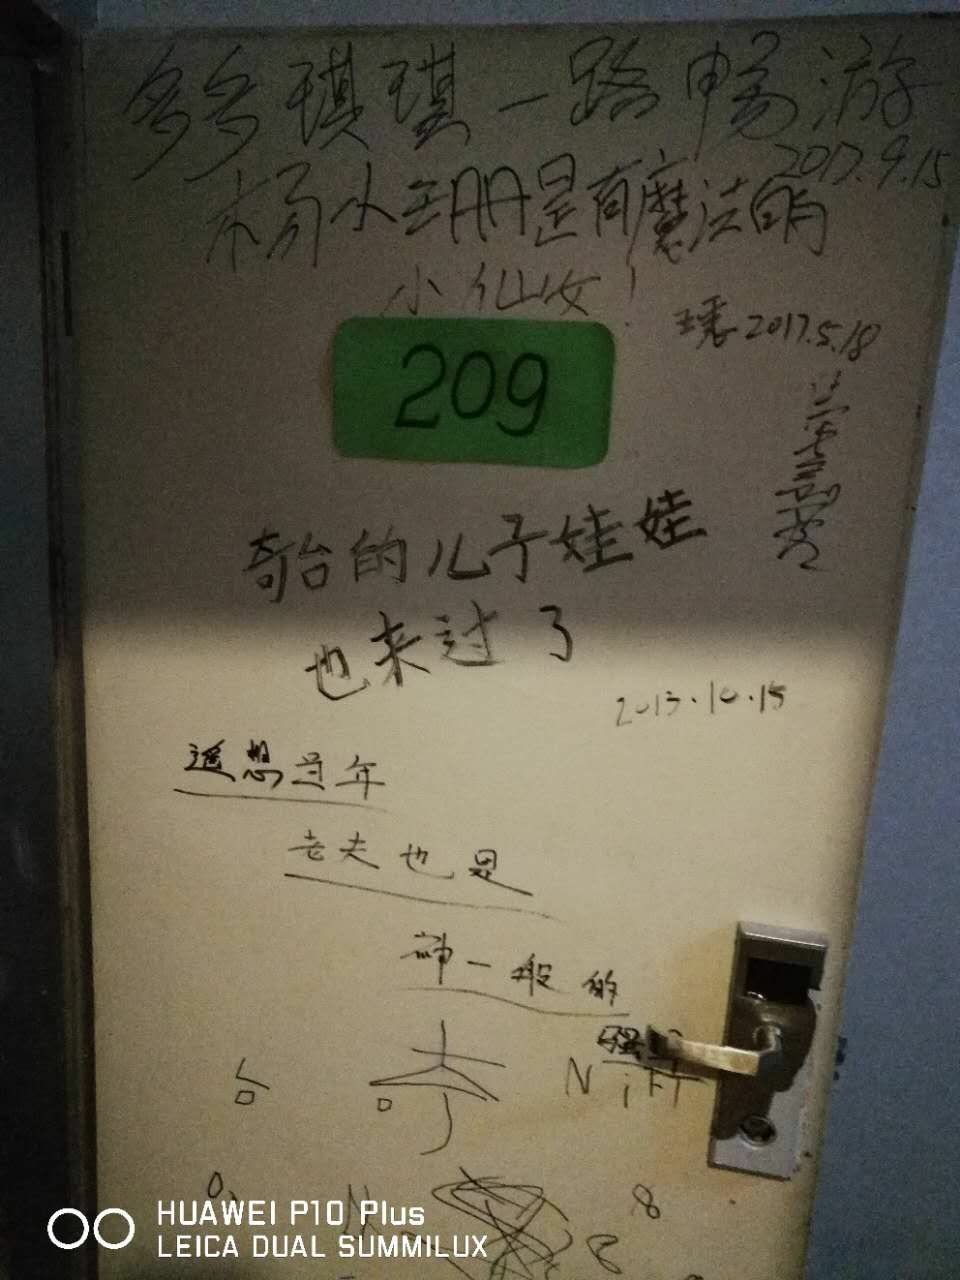 多多琪琪一路畅游
2017.9.15
杨小珊是有魔法的
小仙女!
2017.5.18
209
奇台的儿子娃娃
也来过了
2013.10.15
遥想当年
老夫也是
神一般的
台 奇 N
8
8
HUAWEI P10 Plus
LEICA DUAL SUMMILUX